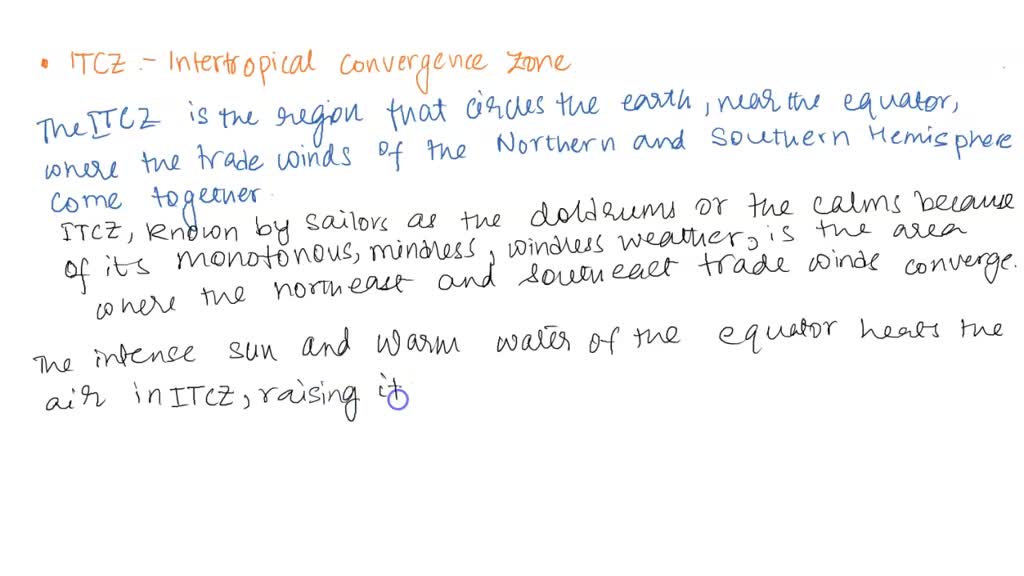 • ITCZ :- Intertropical convergence zone
The ITCZ is the region that circles the earth, near the equator,
where the trade winds of the Northern and Southern Hemisphere
come together.
ITCZ, known by sailors as the doldrums or the calms because
of its monotonous, mindless, windless weather, is the area
where the northeast and southeast trade winds converge.
The intense sun and warm water of the equator heats the
air in ITCZ, raising it